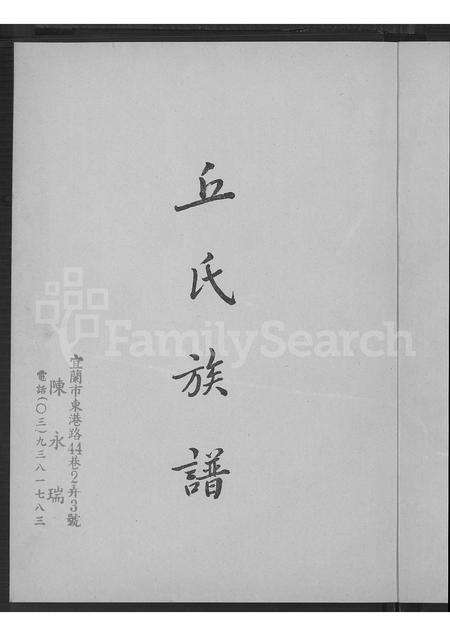 丘氏族譜
宜蘭市東港路44巷2弄3號
陳永瑞
電話(〇三)九三八一七八三
FamilySearch